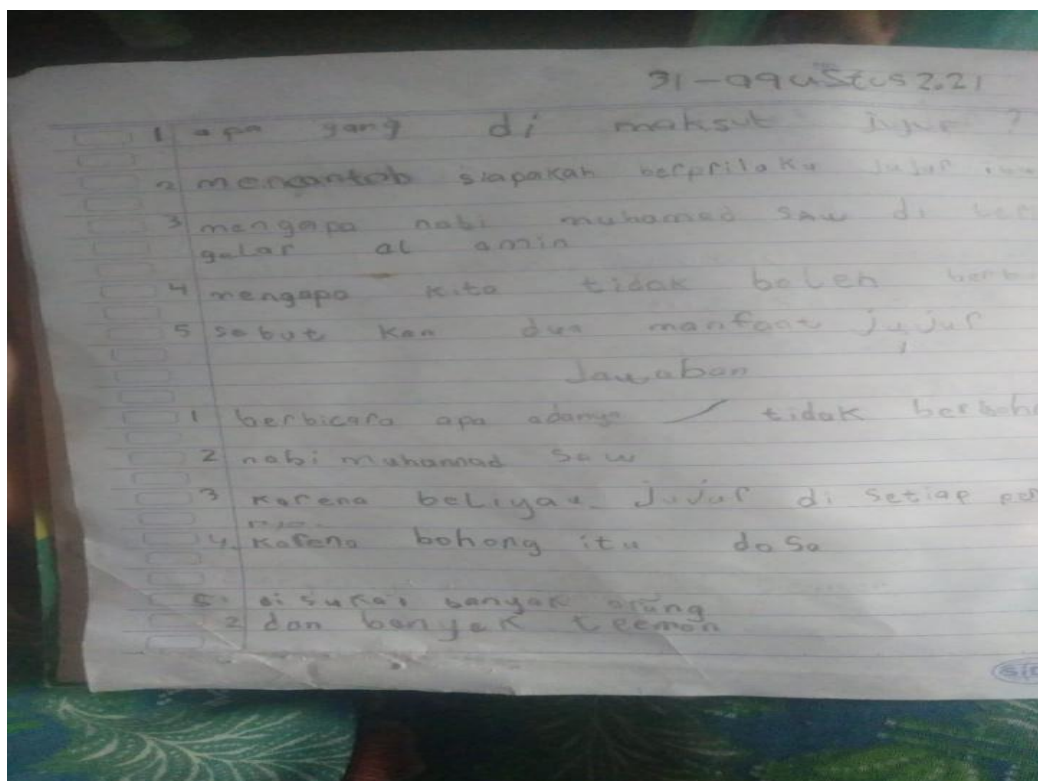 31-agustus 2.21
1 apa yang di maksut jujur ?
2 mencontoh siapakah berprilaku jujur
3 mengapa nabi muhamad saw di
gelar al amin
4 mengapa kita tidak boleh
5 sebut kan dua manfaat jujur
Jawaban
1 berbicara apa adanya / tidak
2 nabi muhammad saw
3 karena beliyau jujur di setiap
4. karena bohong itu dosa
5. di sukai banyak orang
2 dan banyak teemon